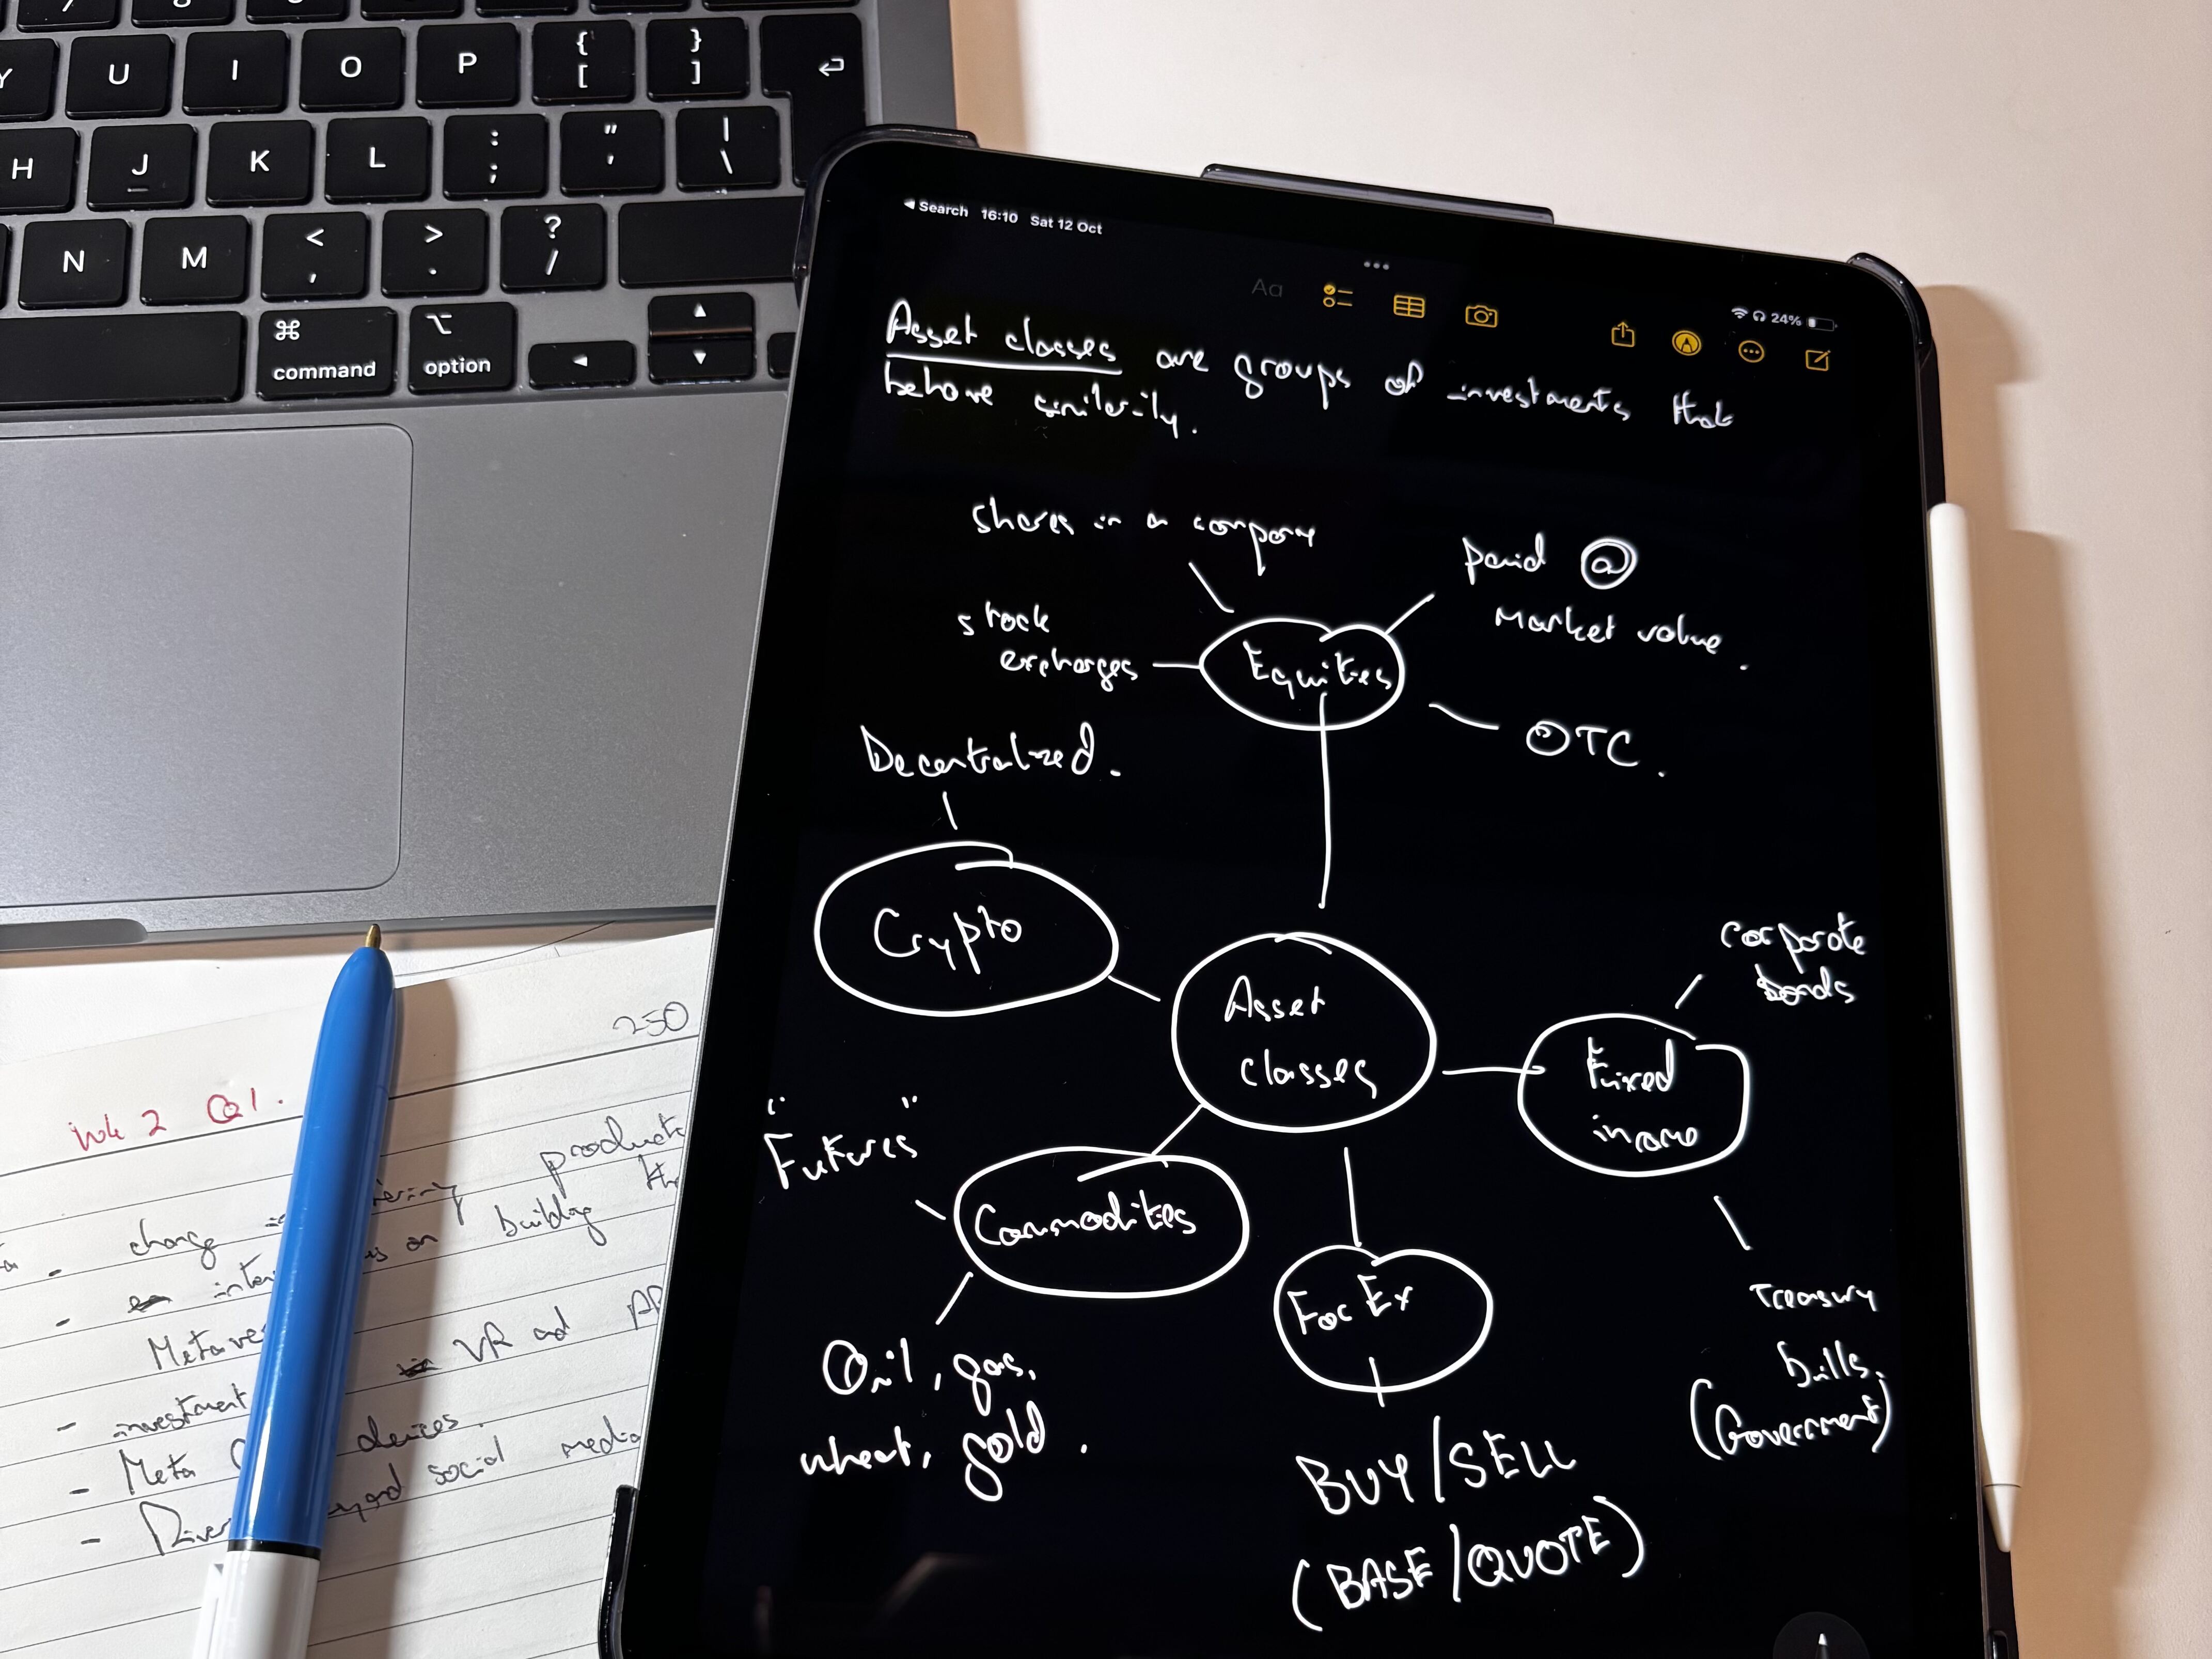 Y U I O P { [ } ]
H J K L : ; " ' | \
N M < , > . ? /
⌘ command ⌥ option
Search 16:10 Sat 12 Oct
Aa
24%
Asset classes are groups of investments that
behave similarily.
shares in a company
paid @
market value.
stock
exchanges
Equities
OTC.
Decentralized.
Crypto
Asset
classes
corporate
bonds
Fixed
income
"Futures"
Commodities
For Ex
Treasury
bills.
(Government)
Oil, gas,
wheat, gold.
BUY/SELL
(BASE/QUOTE)
250
Wk 2 Q1.
- change products
- on building
VR and
- investment
- Meta devices.
- social media